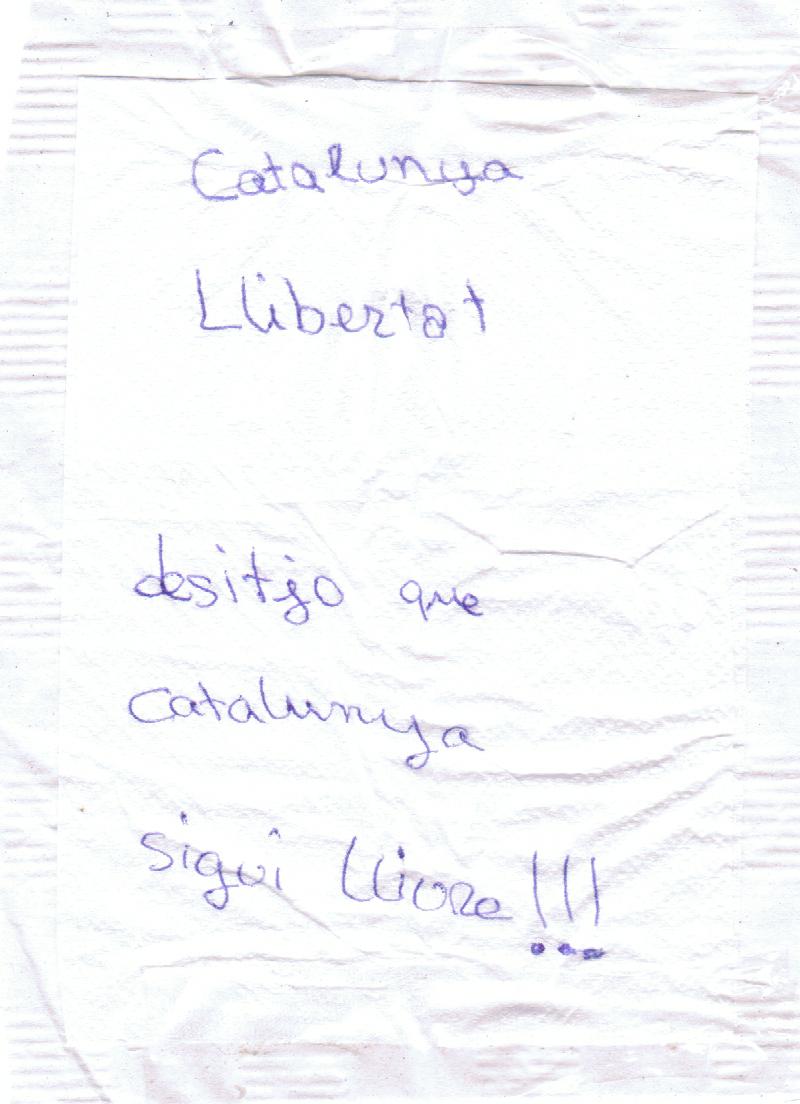 Catalunya
Llibertat
desitjo que
catalunya
sigui lliure!!!